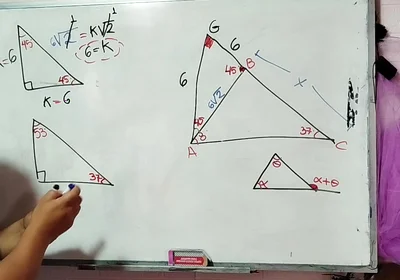 45
6√2 = K√2
6 = K
=6
45
K = 6
53
37
G
6
B
45
6
6√2
x
45
8
A
37
C
θ
α
α+θ